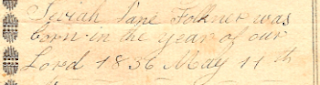 Lane Folkner was
born in the year of our
Lord 1836 May 11th